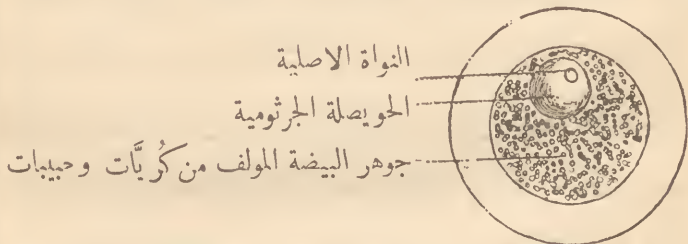 النواة الاصلية
الحويصلة الجرثومية
جوهر البيضة المولف من كُريَّات وحبيبات